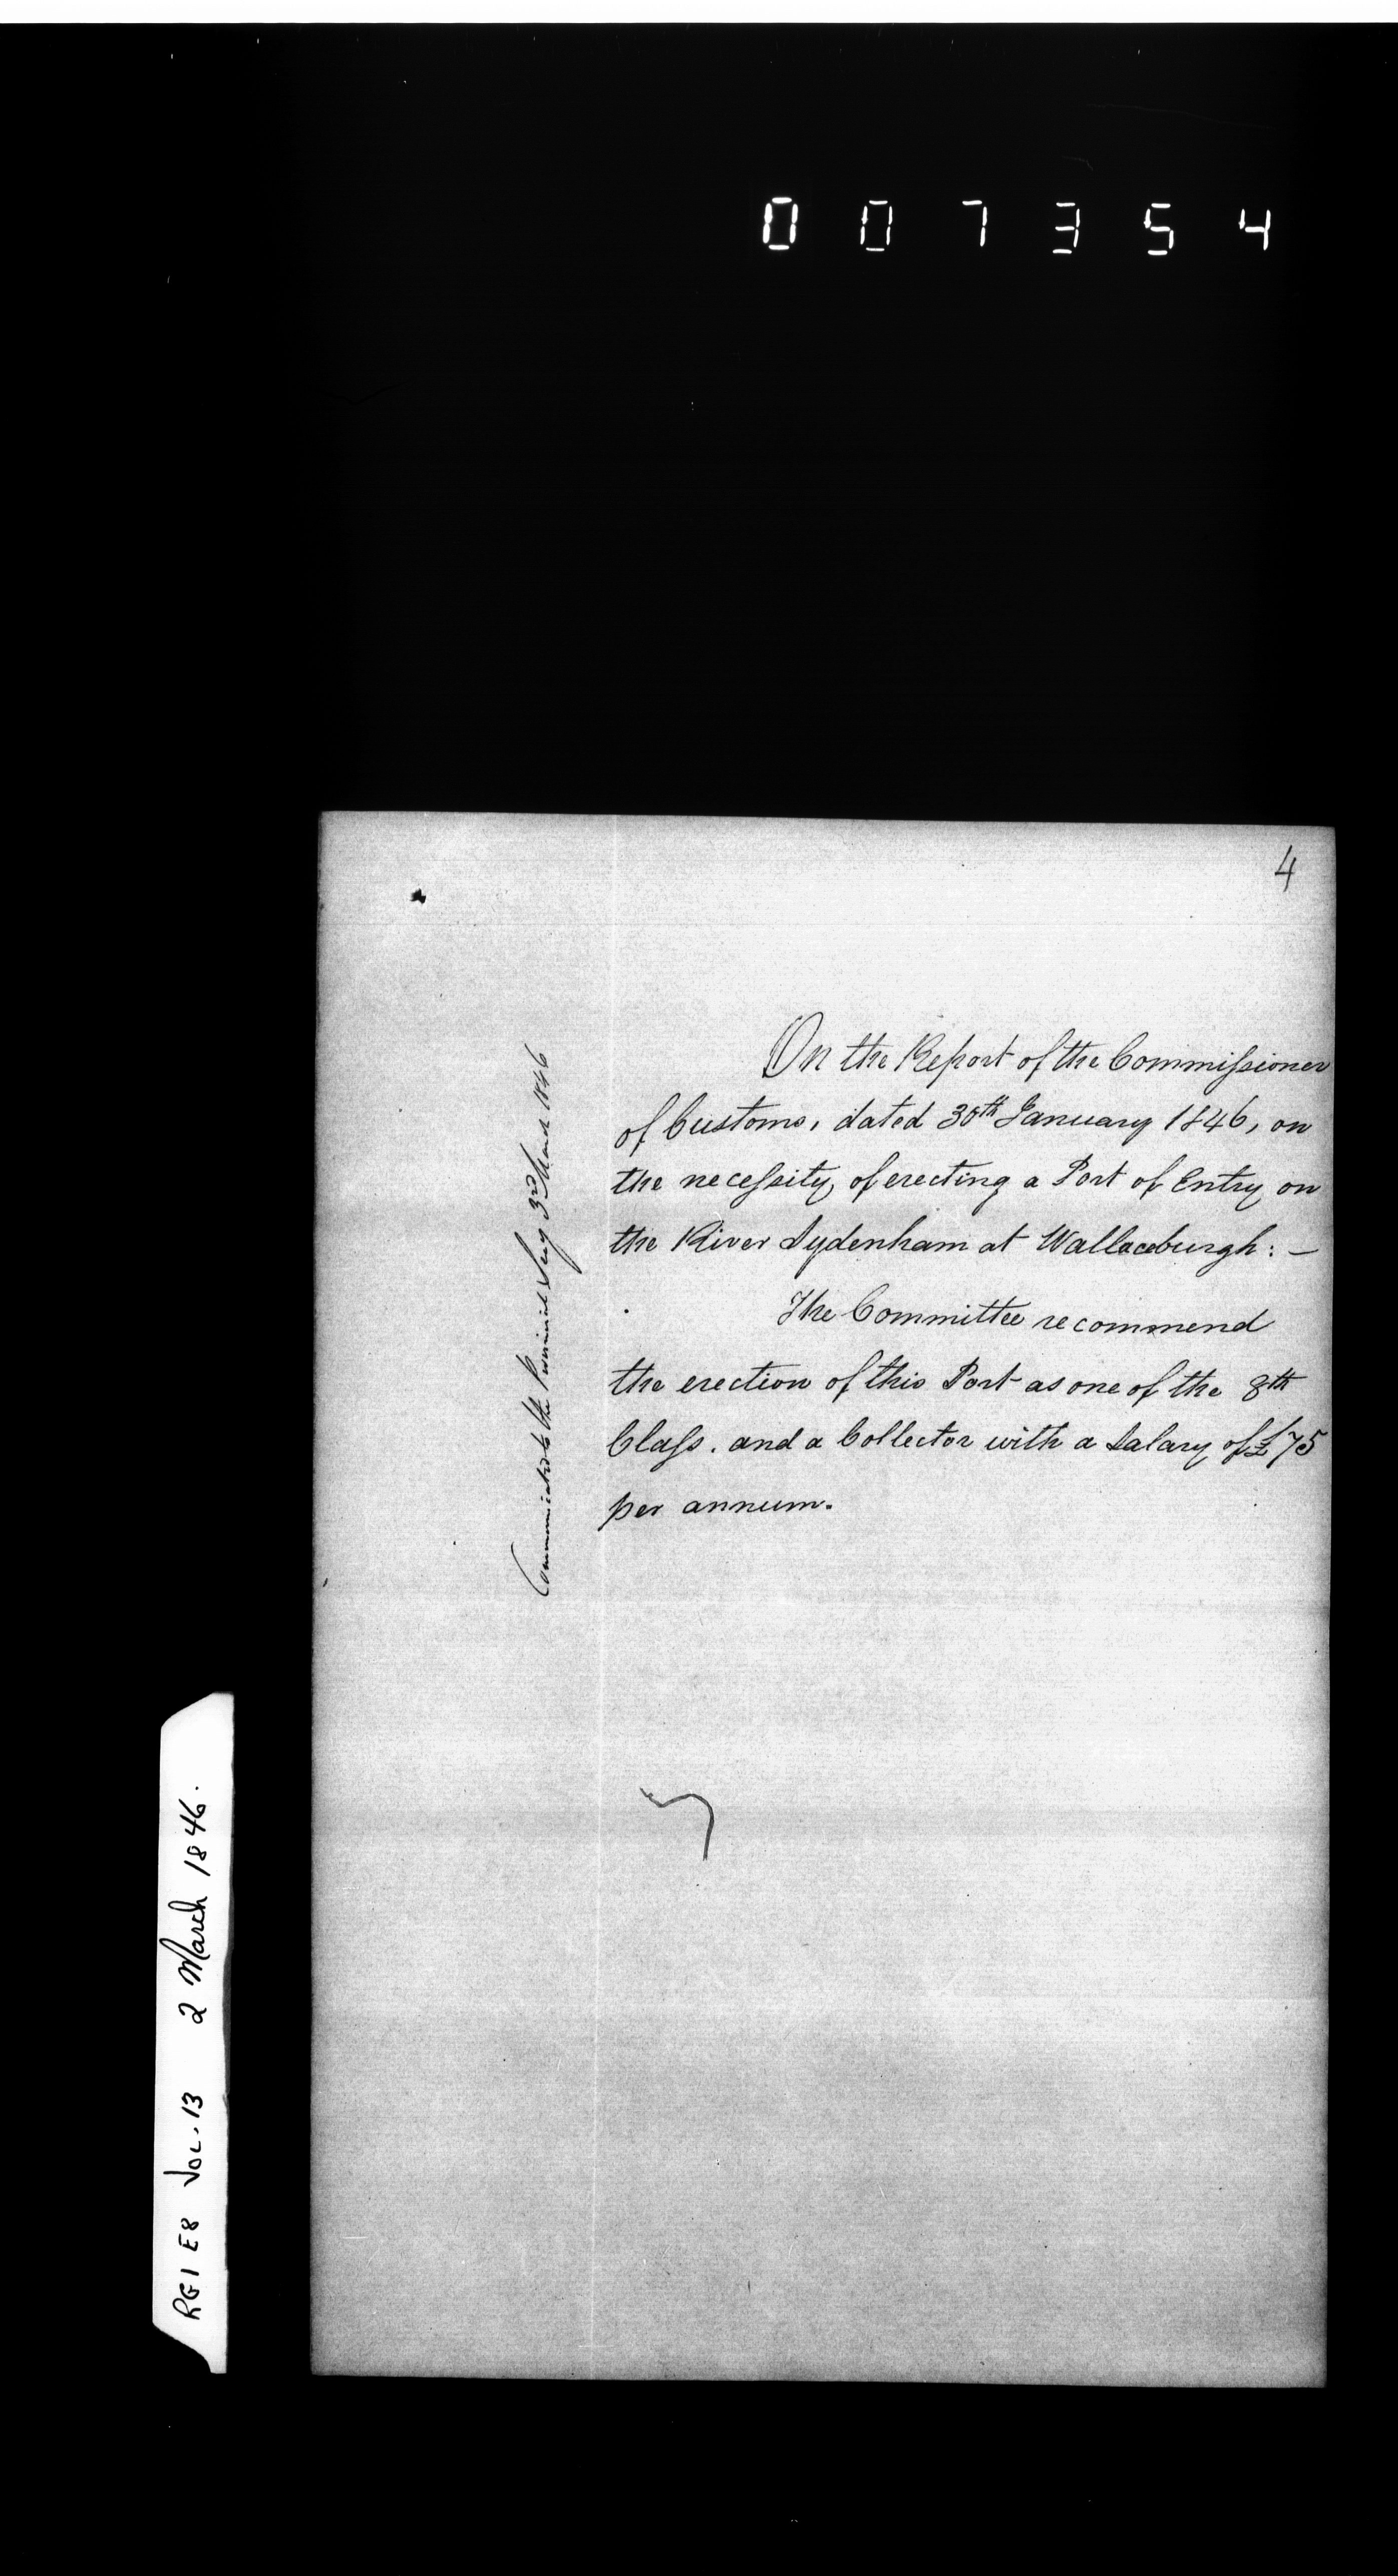 007354
4
On the Report of the Commissioner
of Customs, dated 30th January 1846, on
the necessity of erecting a Port of Entry on
the River Sydenham at Wallaceburgh: —
The Committee recommend
the erection of this Port as one of the 8th
Class. and a Collector with a Salary of £75
per annum.
Communicated to the Provincial Secy 3rd March 1846
RG1 E8 VOL. 13 2 March 1846.